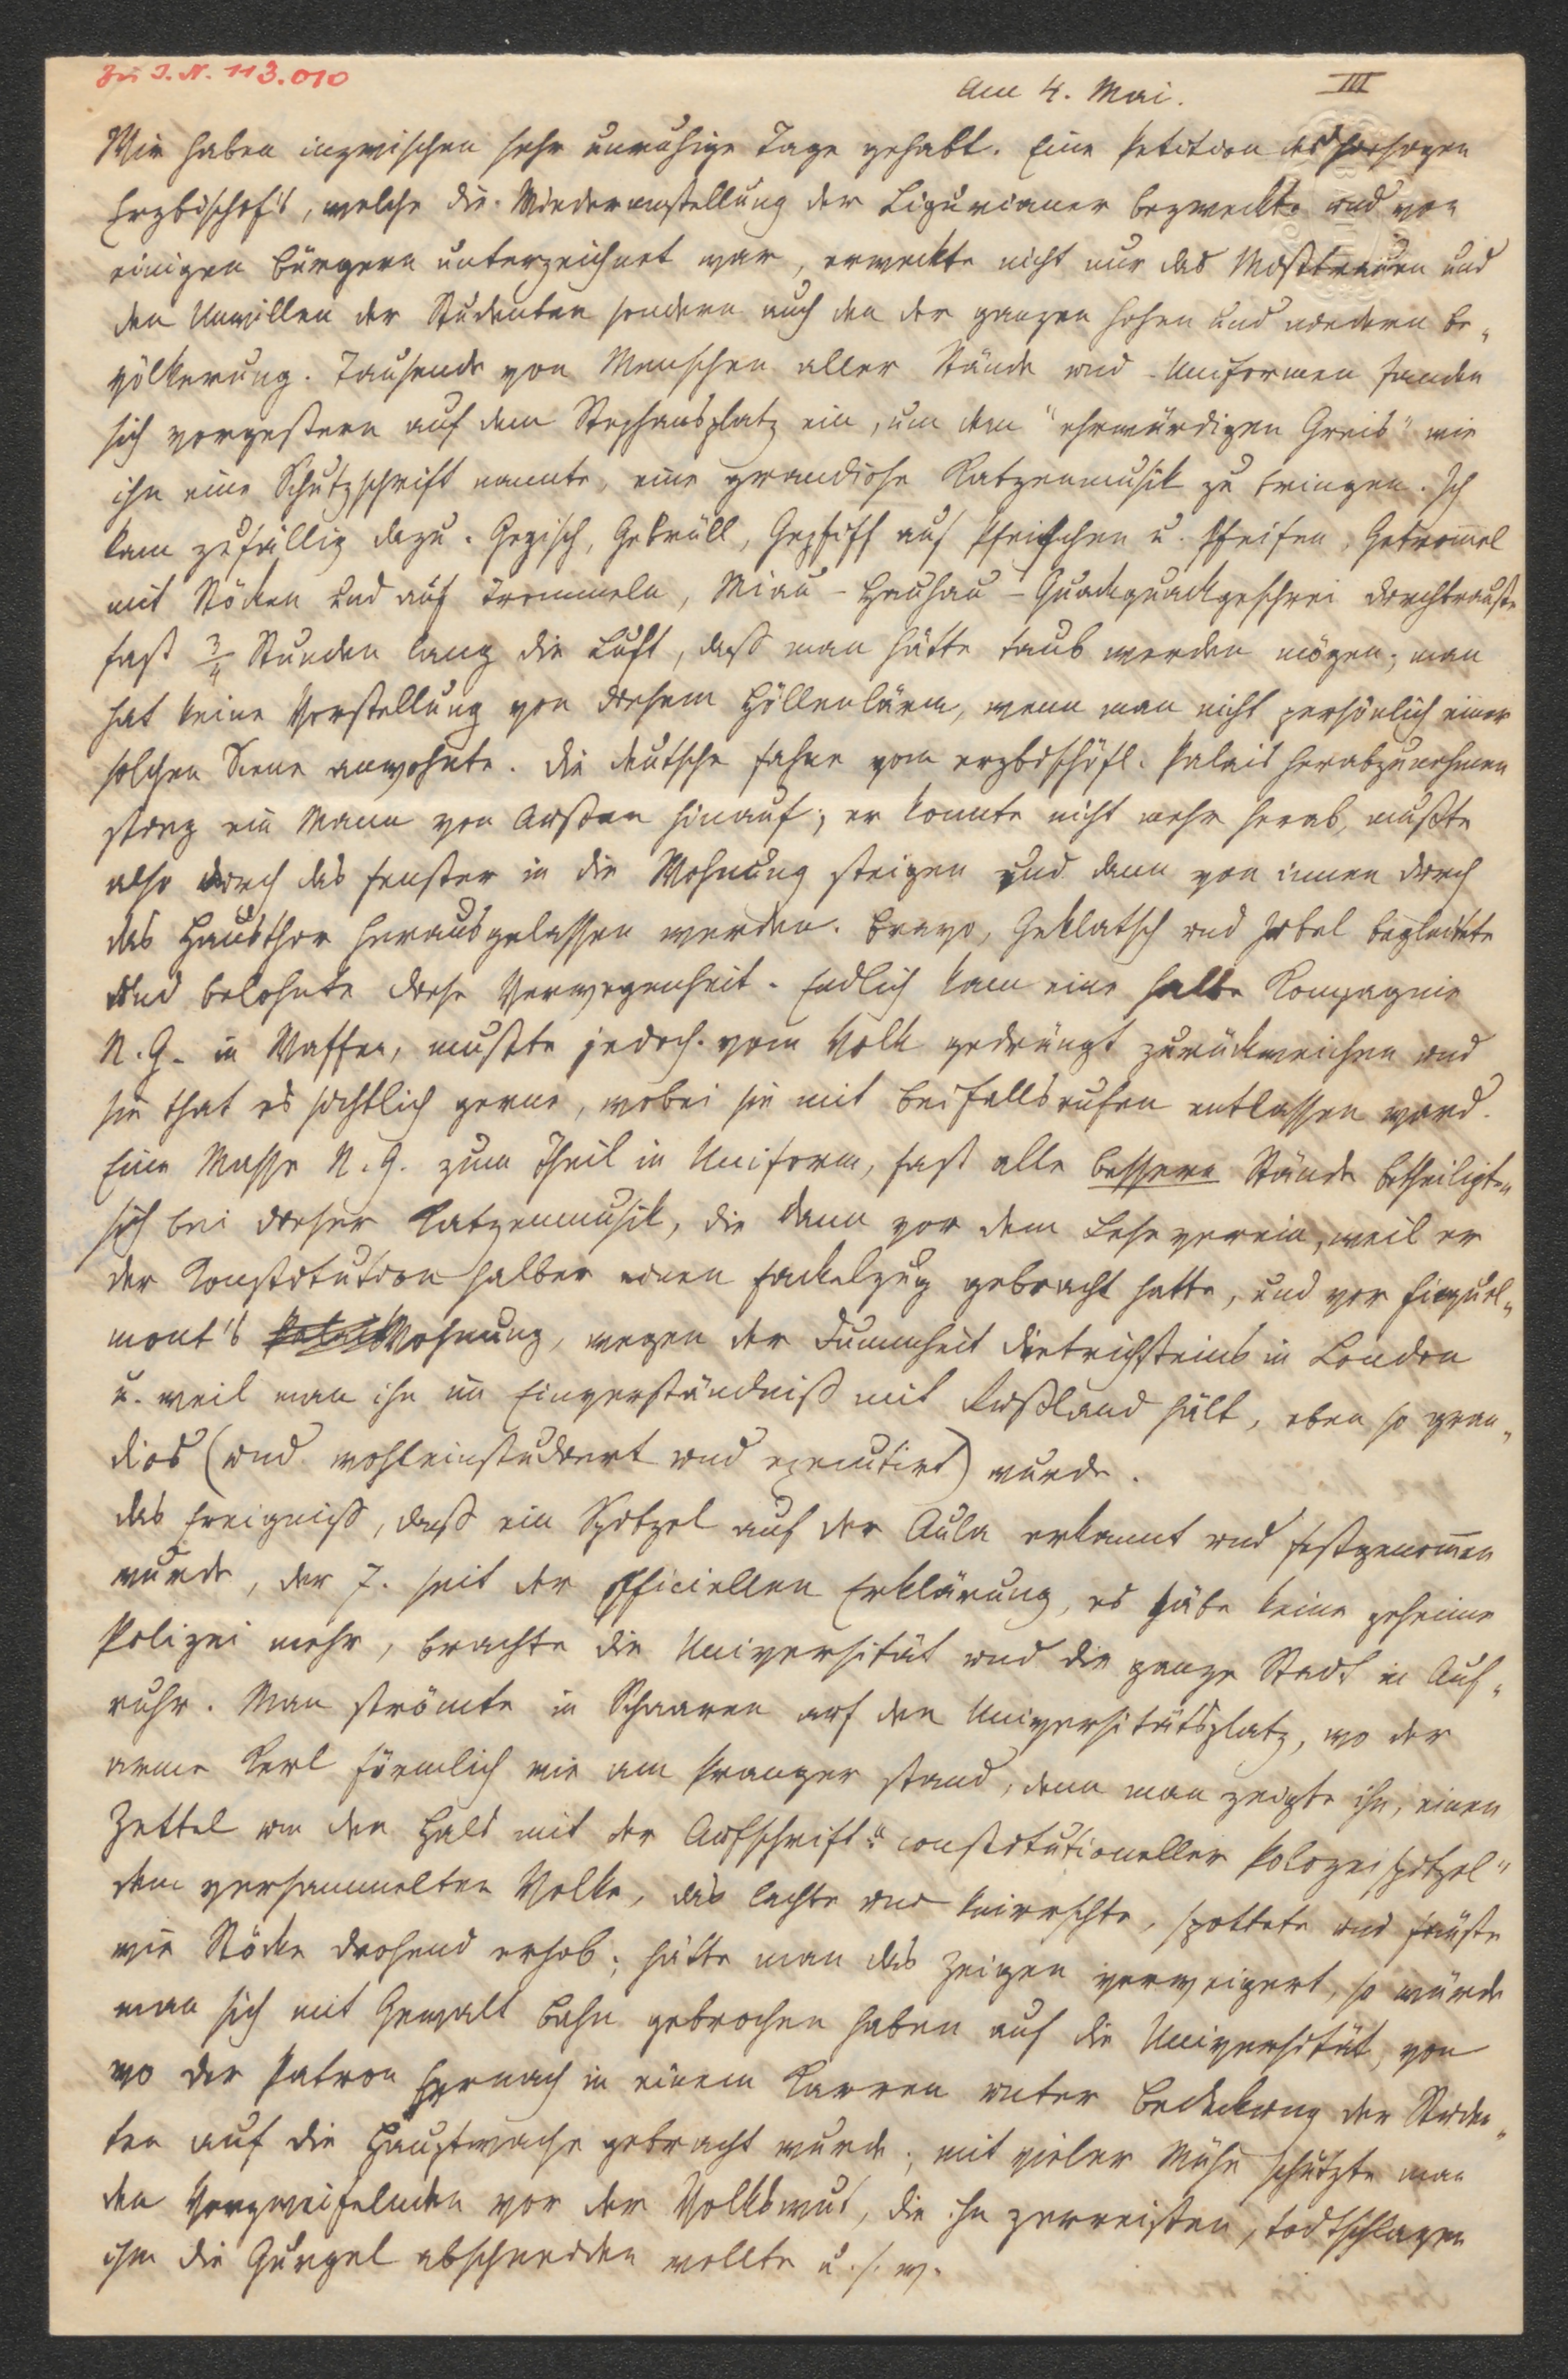 Zu I.N. 113.010
Am 4. Mai.
III
Wir haben inzwischen sehr unruhige Tage gehabt. Eine Petition des hiesigen
Erzbischofs, welche die Wiederanstellung der Liguorianer bezweckte und von
einigen Bürgern unterzeichnet war, erweckte nicht nur das Mißtrauen und
den Unwillen der Studenten sondern auch den der ganzen hohen und niedern Be„
völkerung. Tausende von Menschen aller Stände und Uniformen fanden
sich vorgestern auf dem Stephansplatz ein, um dem "ehrwürdigen Greis" wie
ihn eine Schutzschrift nannte, eine grandiose Katzenmusik zu bringen. Ich
kam zufällig dazu. Gezisch, Gebrüll, Gepfiff auf Pfeifchen u. Pfeifen, Getrom̄el
mit Stöcken und auf Trommeln, Miau-Hauhau-Quackquackgeschrei durchbrauste
fast 3/4 Stunden lang die Luft, dass man hätte taub werden mögen; man
hat keine Vorstellung von diesem Höllenlärm, wenn man nicht persönlich einer
solchen Scene anwohnte. Die deutsche Fahne vom erzbischöfl. Palais herabzunehmen
stieg ein Mann von Außen hinauf; er konnte nicht mehr herab, mußte
also durch das Fenster in die Wohnung steigen und dann von innen durch
das Hausthor herausgelassen werden. Bravo, Geklatsch und Jubel begleitete
und belohnte diese Verwegenheit. Endlich kam eine halbe Kompagnie
N.G. in Waffen, mußte jedoch vom Volk gedrängt zurückweichen und
sie that es sichtlich gerne, wobei sie mit Beifallsrufen entlassen ward.
Eine Masse N.G. zum Theil in Uniform, fast alle bessere Stände betheiligten
sich bei dieser Katzenmusik, die dann vor dem Leseverein, weil er
der Konstitution halber einen Fackelzug gebracht hatte, und vor Fiquel„
mont's Wohnung, wegen der Dummheit Dietrichsteins in London
u. weil man ihn im Einverständniß mit Rußland hält, eben so gran„
dios (und wohleinstudiert und executirt) wurde.
Das Ereigniß, daß ein Spitzel auf der Aula erkannt und festgenom̄en
wurde, der 7. seit der officiellen Erklärung, es gäbe keine geheime
Polizei mehr, brachte die Universität und die ganze Stadt in Auf„
ruhr. Man strömte in Schaaren auf den Universitätsplatz, wo der
arme Kerl förmlich wie am Pranger stand, denn man zeigte ihn, einen
Zettel um den Hals mit der Aufschrift: "constitutioneller Polizeispitzel"
dem versammelten Volke, das lachte und knirschte, spottete und Fäuste
wie Stöcke drohend erhob; hätte man das Zeigen verweigert, so würde
man sich mit Gewalt Bahn gebrochen haben auf die Universität, von
wo der Patron hernach in einem Karren unter Bedeckung der Studen„
ten auf die Hauptwache gebracht wurde; mit vieler Mühe schützte man
den Verzweifelnden vor der Volkswut, die ihn zerreißen, todtschlagen
ihm die Gurgel abschneiden wollte u.s.w.